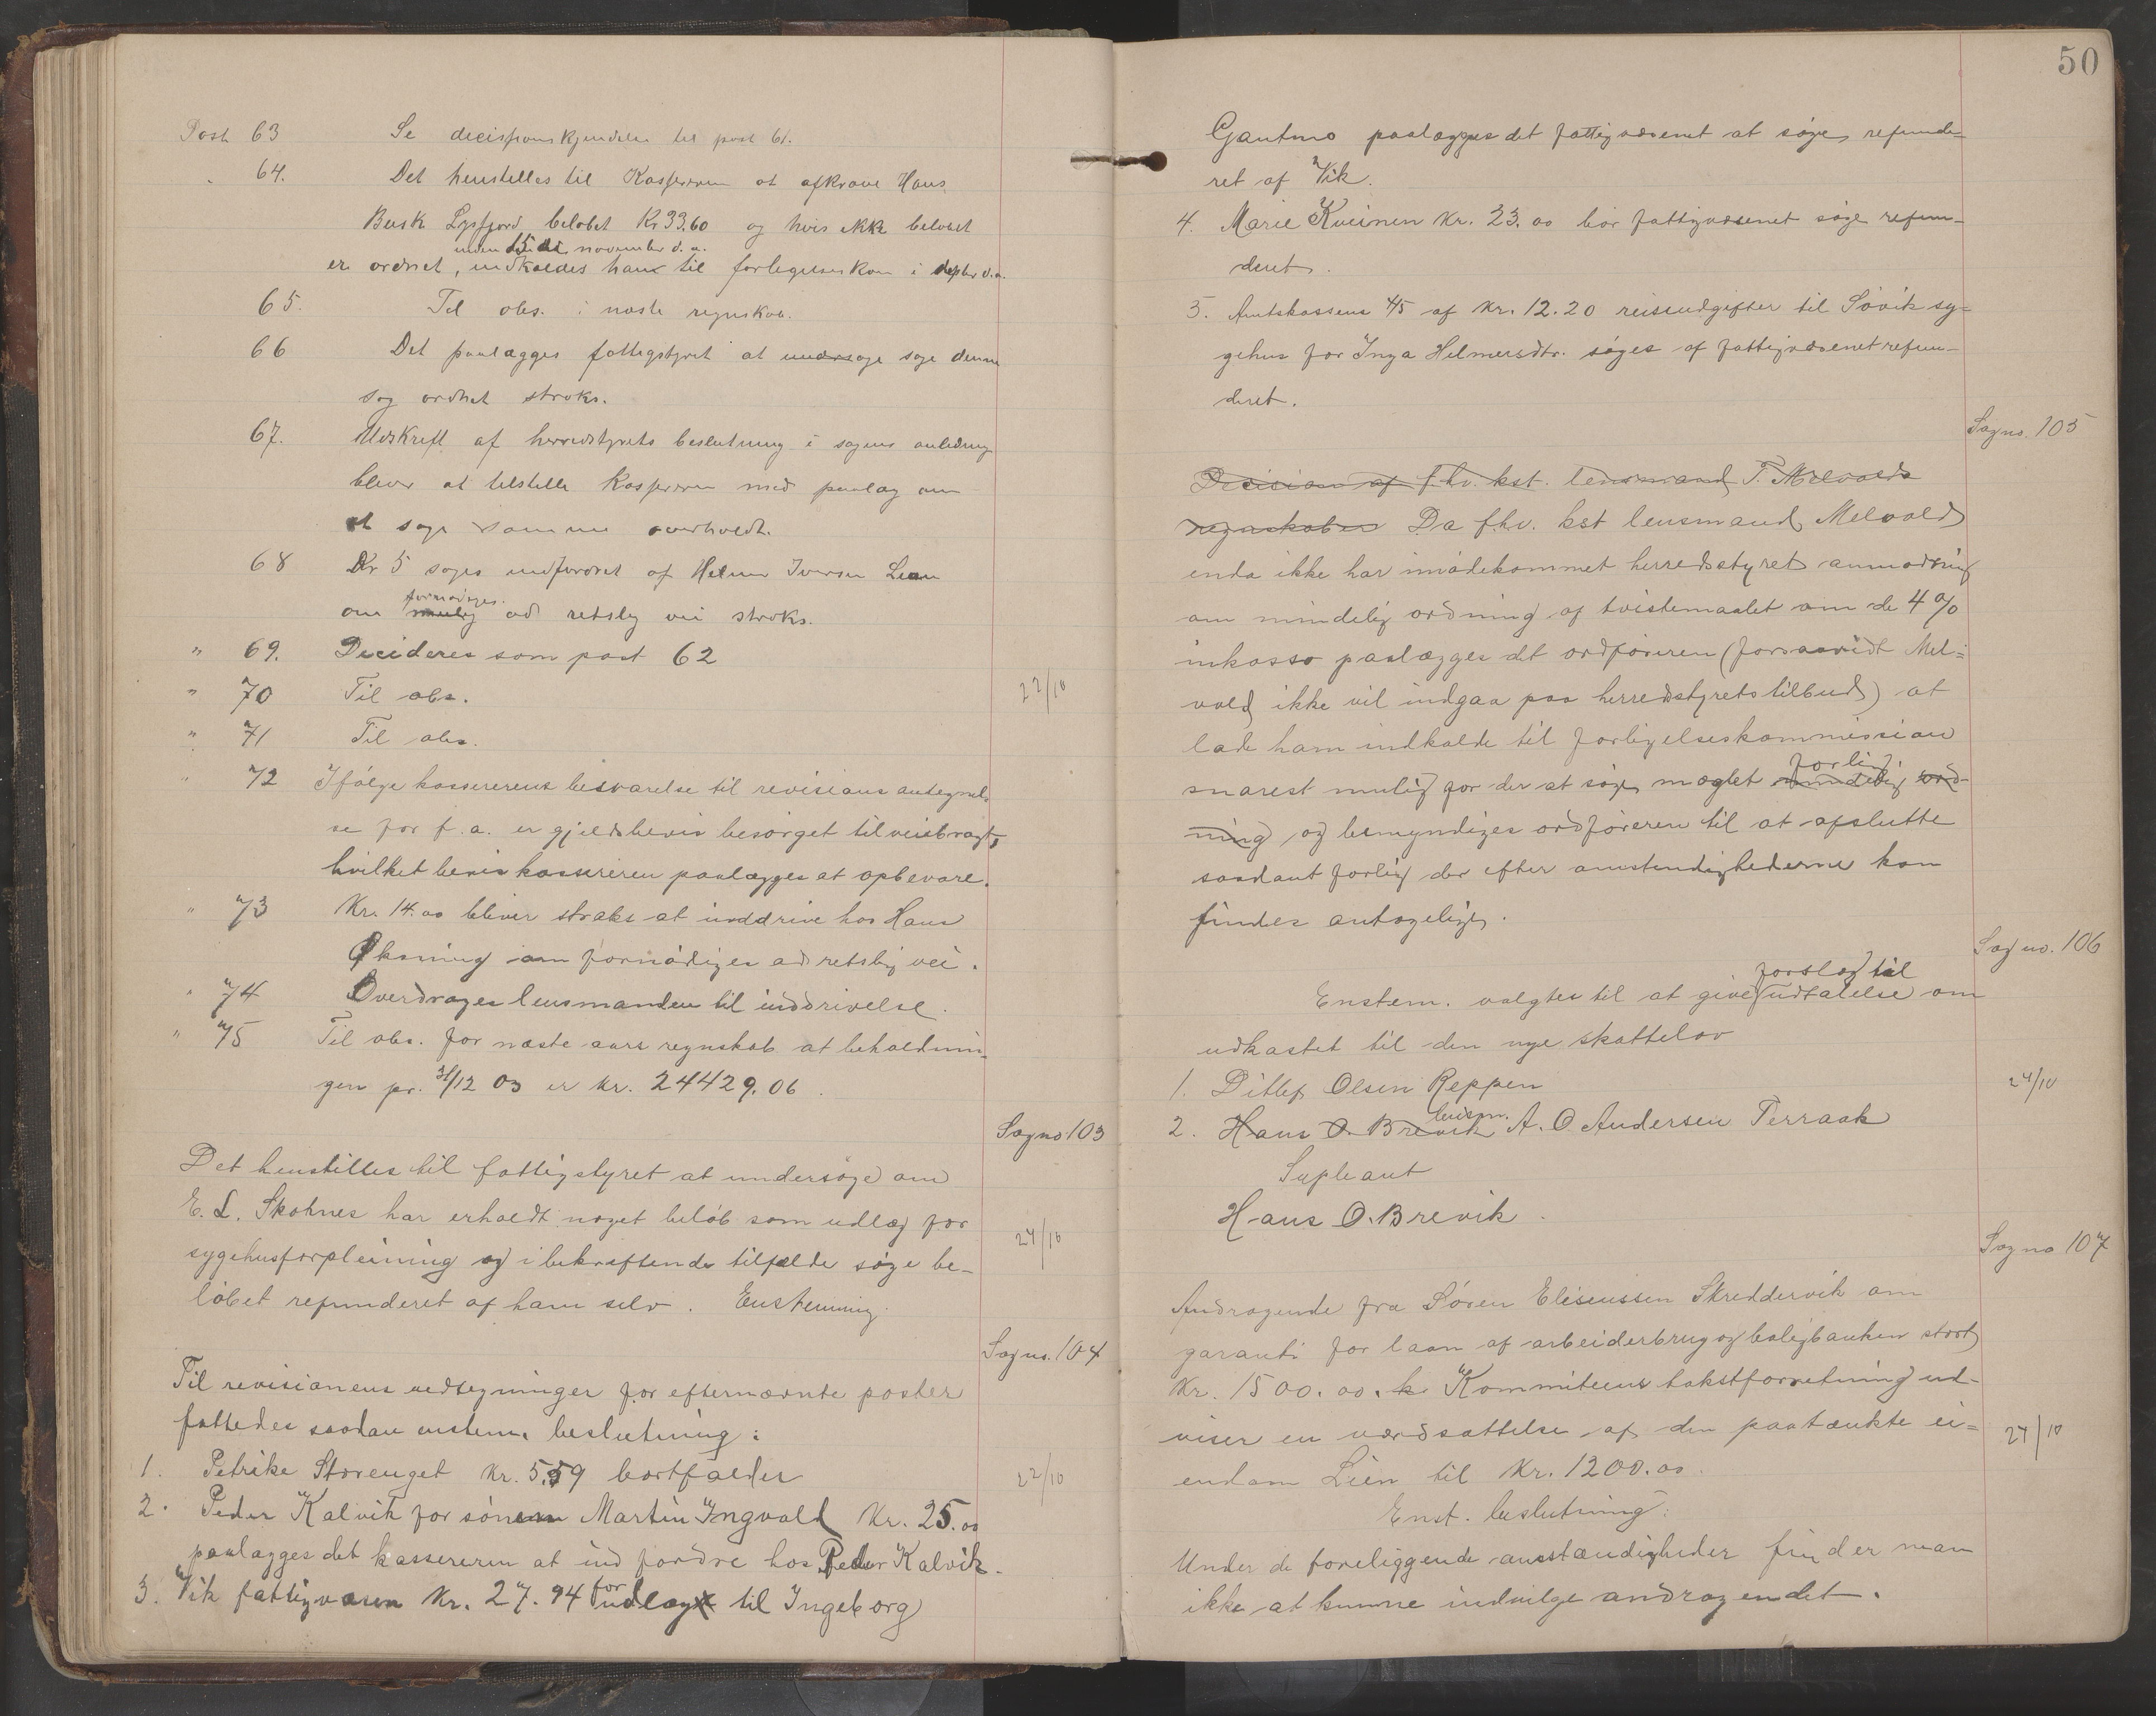 Post 63 Se decisionskjendelse til post 61.
" 64. Det henstilles til Kassereren at afkræve Hans
Busk Lysfjord beløbet Kr 33.60 og hvis ikke beløbet
inden 15de november d. a.
er ordnet, indkaldes han til forligelseskom i septbr d.a.
65. Til obs. i næste regnskab.
66 Det paalægges fattigstyret at undersøge søge denne
sag ordnet straks.
67. Udskrift af herredstyrets beslutning i sagens anledning
bliver at tilstille Kassereren med paalæg om
at søge samme overholdt.
68 Kr 5 søges indfordret af Helmer Iversen Lian
fornødiges.
om mulig ad retslig vei straks.
" 69. Decideres som post 62
" 70 Til obs.
22/10
" 71 Til obs.
" 72 Ifølge kassererens besvarelse til revisions antegnel-
se for f. a. er gjeldsbevis besørget tilveiebragt,
hvilket bevis kassereren paalægges at opbevare.
" 73 Kr. 14.00 bliver straks at inddrive hos Hans
Øksning om fornødiges ad retslig vei.
" 74 Overdrages lensmanden til inddrivelse.
" 75 Til obs. for næste aars regnskab at beholdnin-
gen pr. 31/12 03 er kr. 24429.06.
Sag no. 103
Det henstilles til fattigstyret at undersøge om
E. L. Skotnes har erholdt noget beløb som udlæg for
24/10
sygehusforpleining og i bekræftende tilfælde søge be-
løbet refunderet af ham selv. Enstemmig.
Sag no. 104
Til revisionens udtegninger for efternævnte poster
fattedes saadan enstem. beslutning:
1. Petrike Storenget Kr. 5.59 bortfalder
22/10
2. Peder Kalvik for sønnen Martin Ingvald Kr. 25.00
paalægges det kassereren at indfordre hos Peder Kalvik.
3. Vik fattigvæsen Kr. 27.94 for udlæg til Ingeborg
50
Gautmo paalægges det fattigvæsenet at søge refunde-
ret af Vik.
4. Marie Kveinen Kr. 23.00 bør fattigvæsenet søge refun-
deret.
5. Amtskassens 4/5 af Kr. 12.20 reiseudgifter til Søvik sy-
gehus for Inga Helmersdtr. søges af fattigvæsenet refun-
deret.
Sag no. 105
Decision af f.hv. kst. lensmand T. Melvolds
regnskaber Da f.hv. kst lensmand Melvold
enda ikke har imødekommet herredsstyrets anmodning
om mindelig ordning af tvistemaalet om de 4%
inkasso paalægges det ordføreren (forsaavidt Mel-
vold ikke vil indgaa paa herredsstyrets tilbud) at
lade ham indkalde til forligelseskommission
forlig
snarest mulig for der at søge mæglet mindelig ord-
ning og bemyndiges ordføreren til at afslutte
saadant forlig der efter omstendighederne kan
findes antagelig.
Sag no. 106
forslag til
Enstem. valgtes til at give udtalelse om
udkastet til den nye skattelov
1. Ditlef Olsen Reppen
24/10
lensm.
2. Hans O. Brevik A. O Andersen Terraak
Supleant
Hans O. Brevik.
Sag no 107
Andragende fra Søren Eliseussen Skreddervik om
garanti for laan af arbeiderbrug og boligbanken stort
Kr. 1500.00. k Kommiteens takstforretning ud-
viser en værdsættelse af den paatænkte ei-
24/10
endom Lien til Kr. 1200.00.
Enst. beslutning:
Under de foreliggende omstændigheder finder man
ikke at kunne indvilge andragendet.